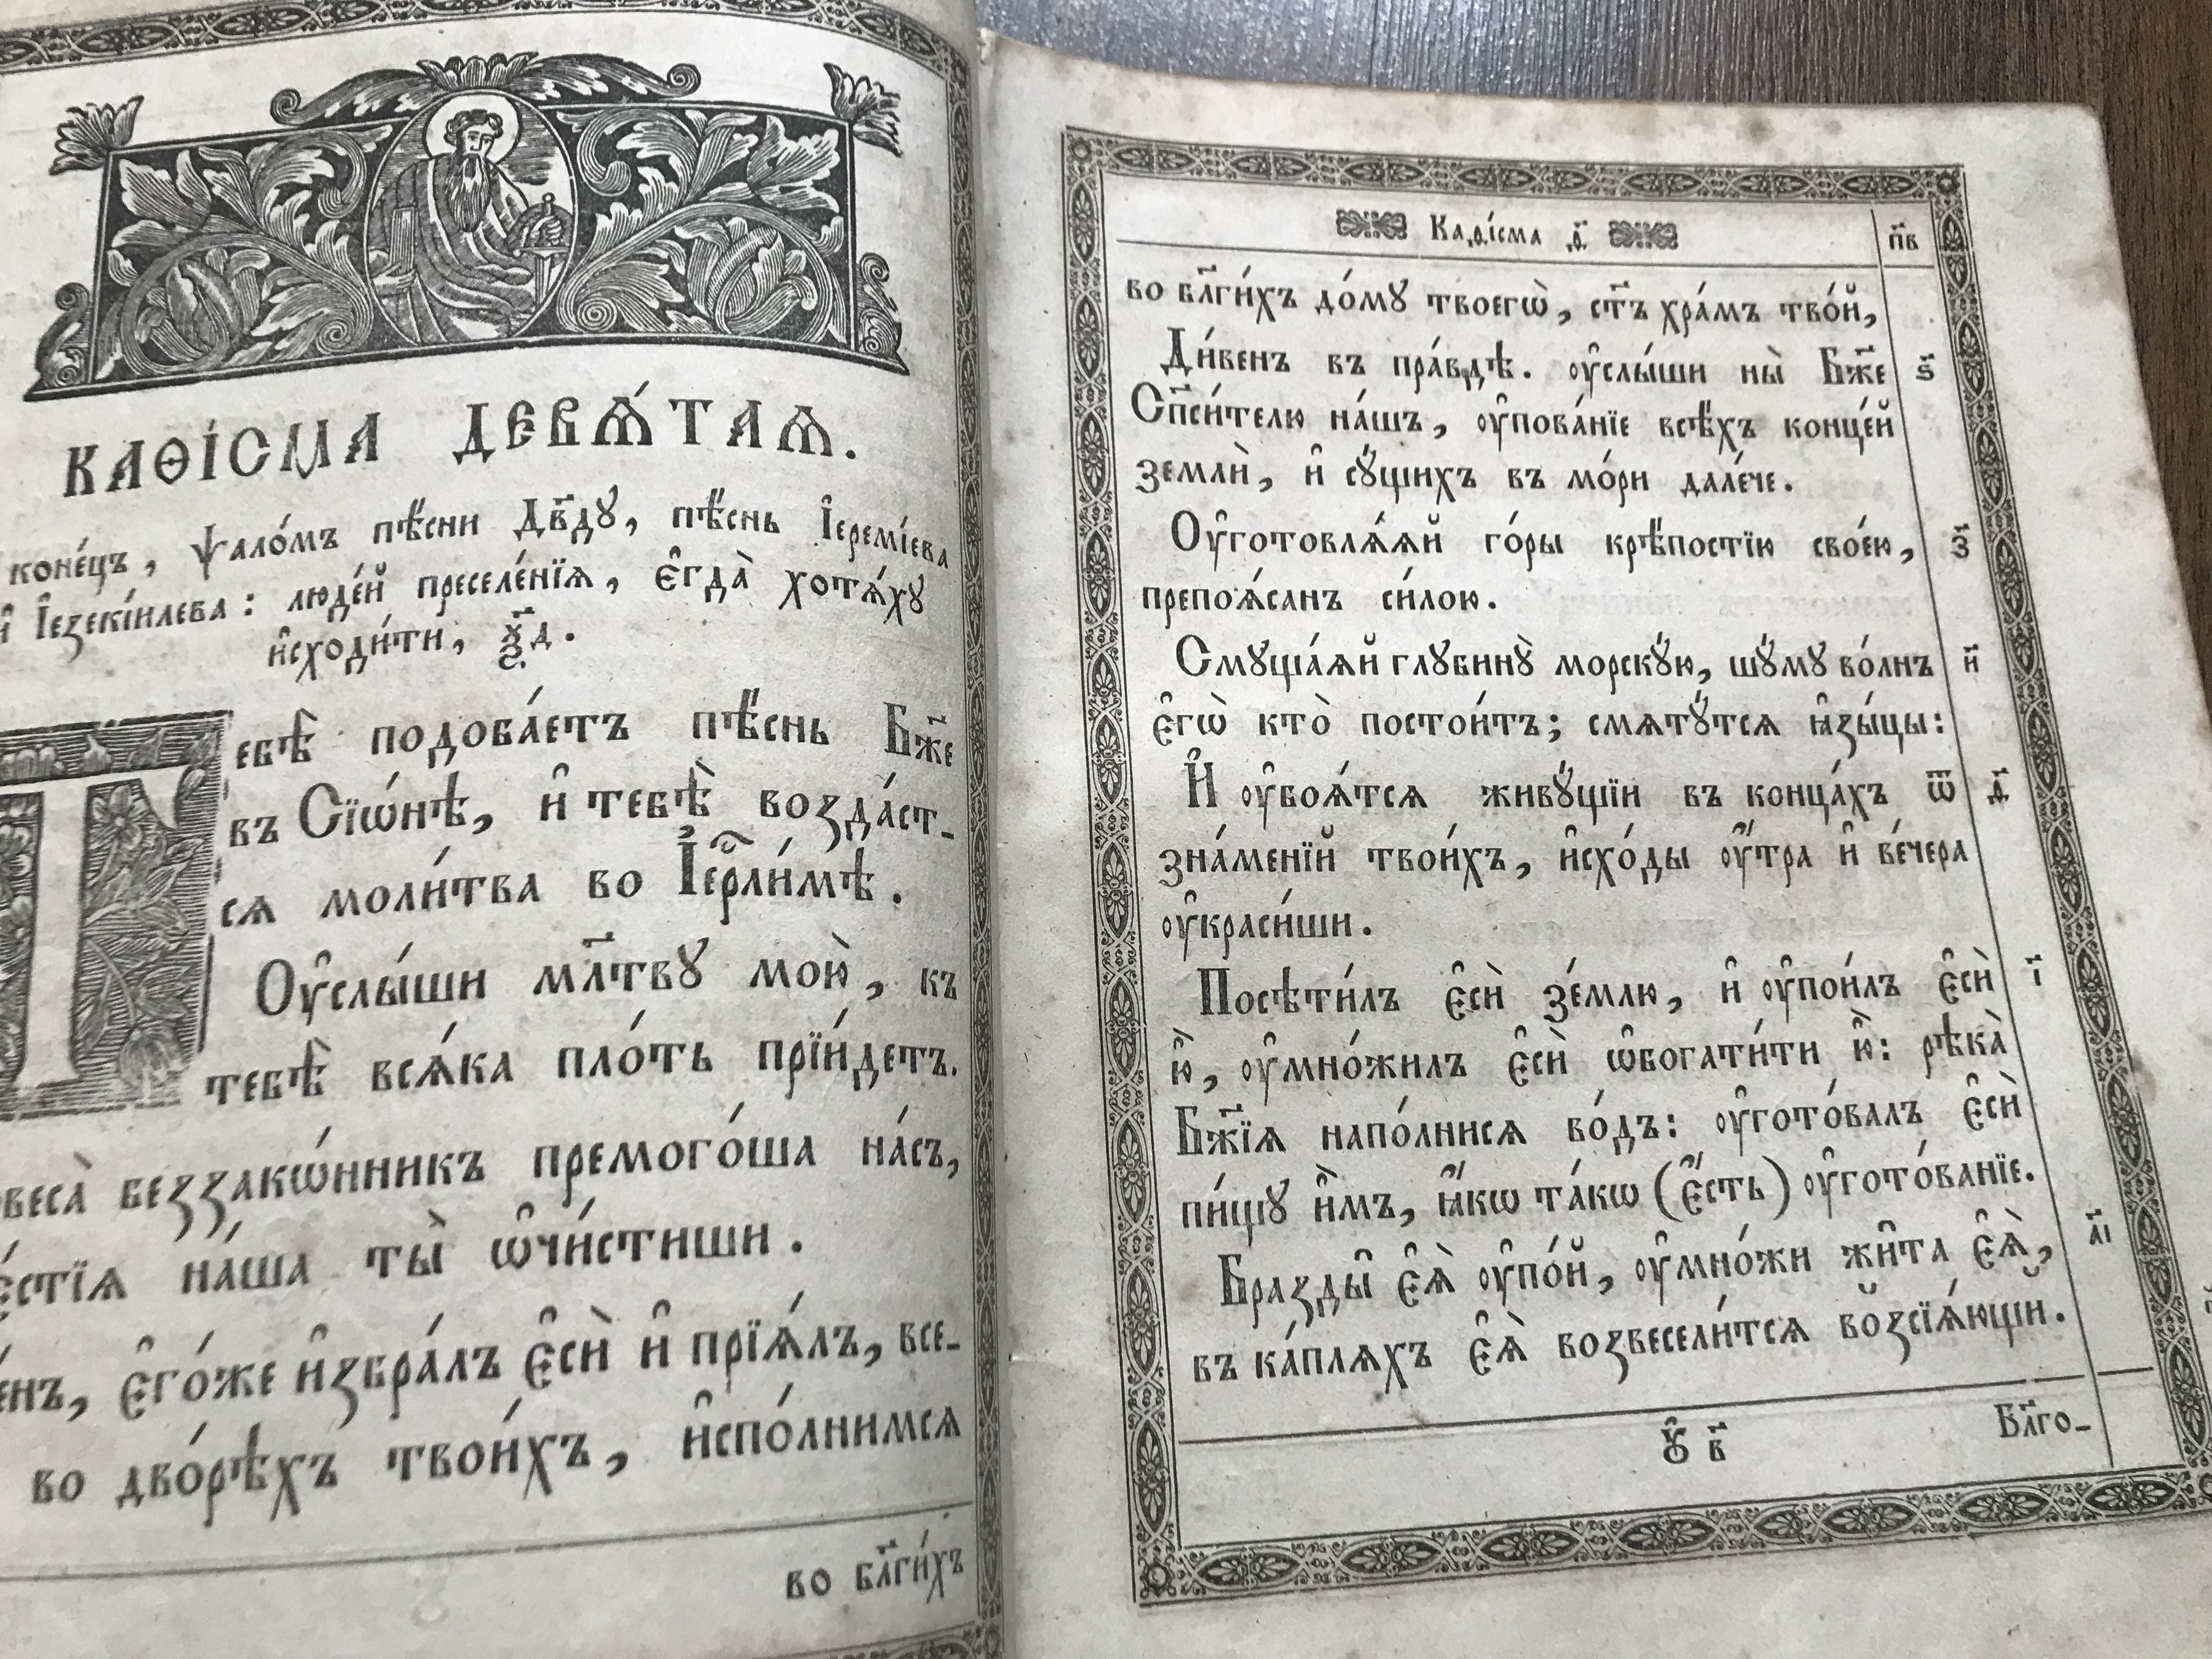 КАѲІ́СМА ДЕВѦ́ТАѦ.
коне́цъ, ѱало́мъ пѣ́сни Дв҃ду, пѣ́снь І҆еремі́ева
и҆ І҆езекі́илева: люде́й преселе́нїѧ, є҆гда̀ хотѧ́хꙋ
и҆сходи́ти, ѯ҃д.
Тебѣ̀ подоба́етъ пѣ́снь Бж҃е
въ Сїѡ́нѣ, и҆ тебѣ̀ возда́ст-
сѧ моли́тва во І҆ерⷭ҇ли́мѣ.
Оу҆слы́ши мл҃твꙋ мою̀, къ
тебѣ̀ всѧ́ка пло́ть прїи́детъ.
беззакѡ́нникъ премого́ша на́съ,
на́ша ты̀ ѡ҆чи́стиши.
є҆го́же и҆збра́лъ є҆сѝ и҆ прїѧ́лъ, все-
во дво́рѣхъ твои́хъ, и҆спо́лнимсѧ
во бл҃ги́хъ
Каѳі́сма ѳ҃. п҃в
во бл҃ги́хъ до́мꙋ твоегѡ̀, ст҃ъ хра́мъ тво́й,
Ди́венъ въ пра́вдѣ. оу҆слы́ши ны̀ Бж҃е ѕ҃
Сп҃си́телю на́шъ, оу҆пова́нїе всѣ́хъ конце́й
землѝ, и҆ сꙋ́щихъ въ мо́ри дале́че.
Оу҆готовлѧ́ѧй го́ры крѣ́постїю свое́ю, з҃
препоѧ́санъ си́лою.
Смꙋща́ѧй глꙋбинꙋ̀ морскꙋ́ю, шꙋ́мꙋ во́лнъ и҃
є҆гѡ̀ кто̀ постои́тъ; смѧтꙋ́тсѧ ꙗ҆зы́цы:
И҆ оу҆боѧ́тсѧ живꙋ́щїи въ конца́хъ ѿ ѳ҃
зна́менїй твои́хъ, и҆схо́ды оу҆́тра и҆ ве́чера
оу҆краси́ши.
Посѣти́лъ є҆сѝ зе́млю, и҆ оу҆пои́лъ є҆сѝ і҃
ю҆̀, оу҆мно́жилъ є҆сѝ ѡ҆богати́ти ю҆̀: рѣка̀
Бж҃їѧ напо́лнисѧ во́дъ: оу҆гото́валъ є҆сѝ
пи́щꙋ и҆̀мъ, ꙗ҆́кѡ та́кѡ (є҆́сть) оу҆гото́ванїе.
Бразды̑ є҆ѧ̀ оу҆по́й, оу҆мно́жи жи̑та є҆ѧ̀, а҃і
въ ка́плѧхъ є҆ѧ̀ возвесели́тсѧ возсїѧ́ющи.
Бл҃го-